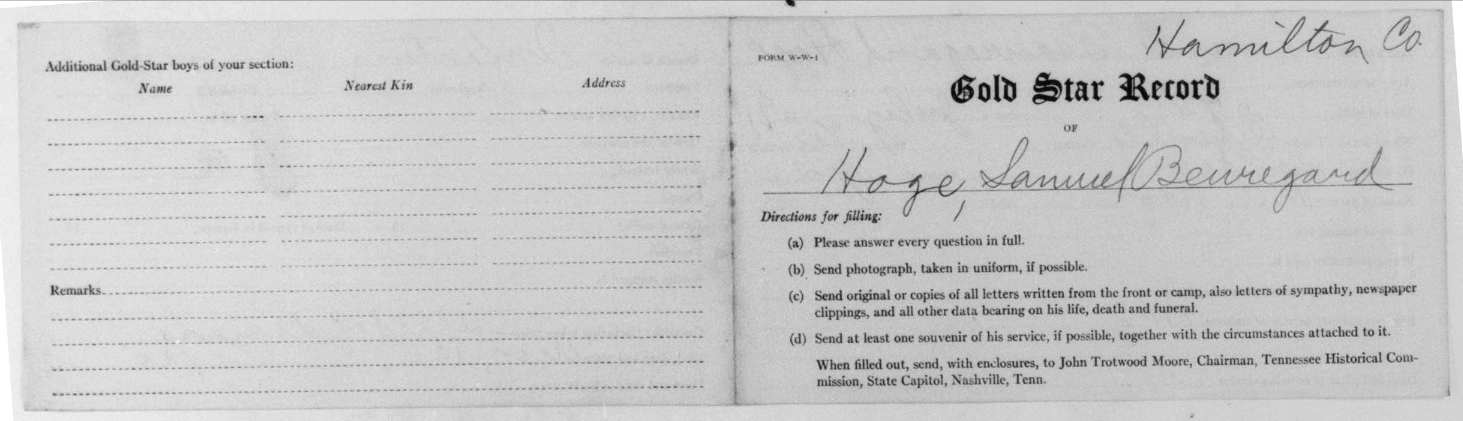 Additional Gold-Star boys of your section:
Name Nearest Kin Address
Remarks
Hamilton Co.
FORM W-W-1
Gold Star Record
OF
Hoge, Samuel Beuregard
Directions for filling:
(a) Please answer every question in full.
(b) Send photograph, taken in uniform, if possible.
(c) Send original or copies of all letters written from the front or camp, also letters of sympathy, newspaper
clippings, and all other data bearing on his life, death and funeral.
(d) Send at least one souvenir of his service, if possible, together with the circumstances attached to it.
When filled out, send, with enclosures, to John Trotwood Moore, Chairman, Tennessee Historical Com-
mission, State Capitol, Nashville, Tenn.